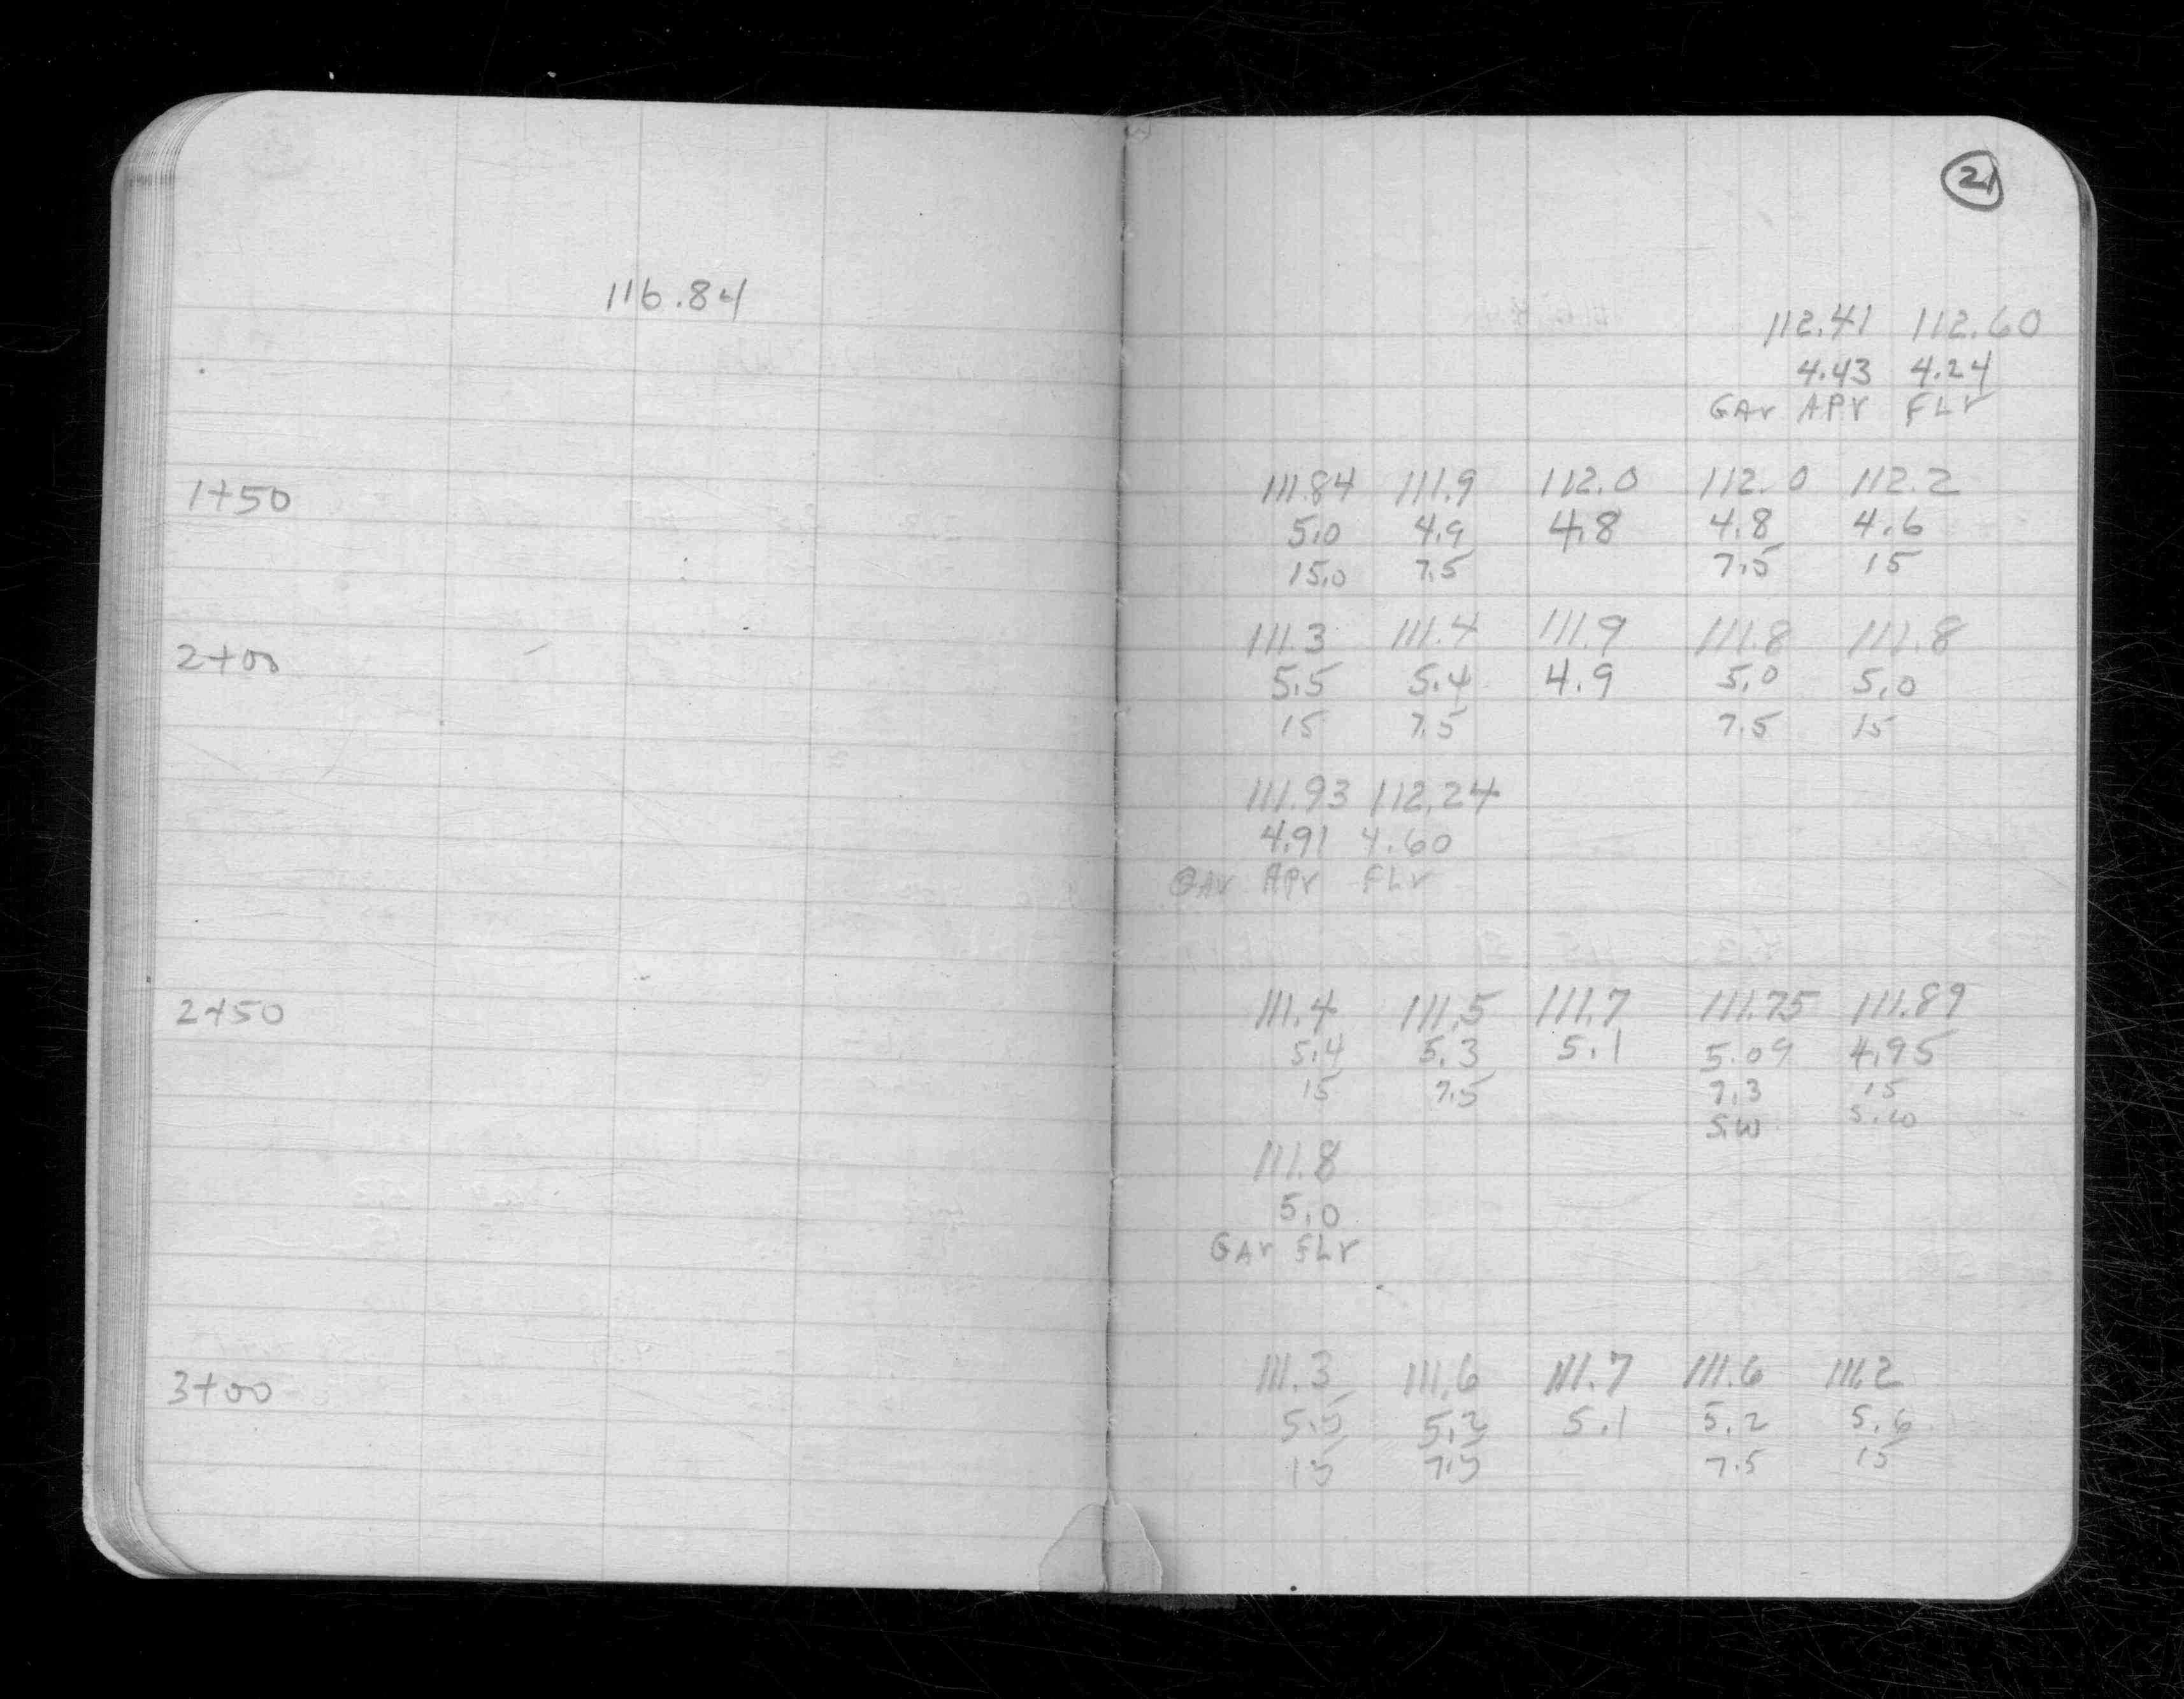 116.84
1+50
2+00
2+50
3+00
21
112.41 112.60
4.43 4.24
GAr APr FLr
111.84 111.9 112.0 112.0 112.2
5.0 4.9 4.8 4.8 4.6
15.0 7.5 7.5 15
111.3 111.4 111.9 111.8 111.8
5.5 5.4 4.9 5.0 5.0
15 7.5 7.5 15
111.93 112.24
4.91 4.60
GAr APr FLr
111.4 111.5 111.7 111.75 111.89
5.4 5.3 5.1 5.09 4.95
15 7.5 7.3 15
S.W S.W
111.8
5.0
GAr FLr
111.3 111.6 111.7 111.6 111.2
5.5 5.2 5.1 5.2 5.6
15 7.5 7.5 15